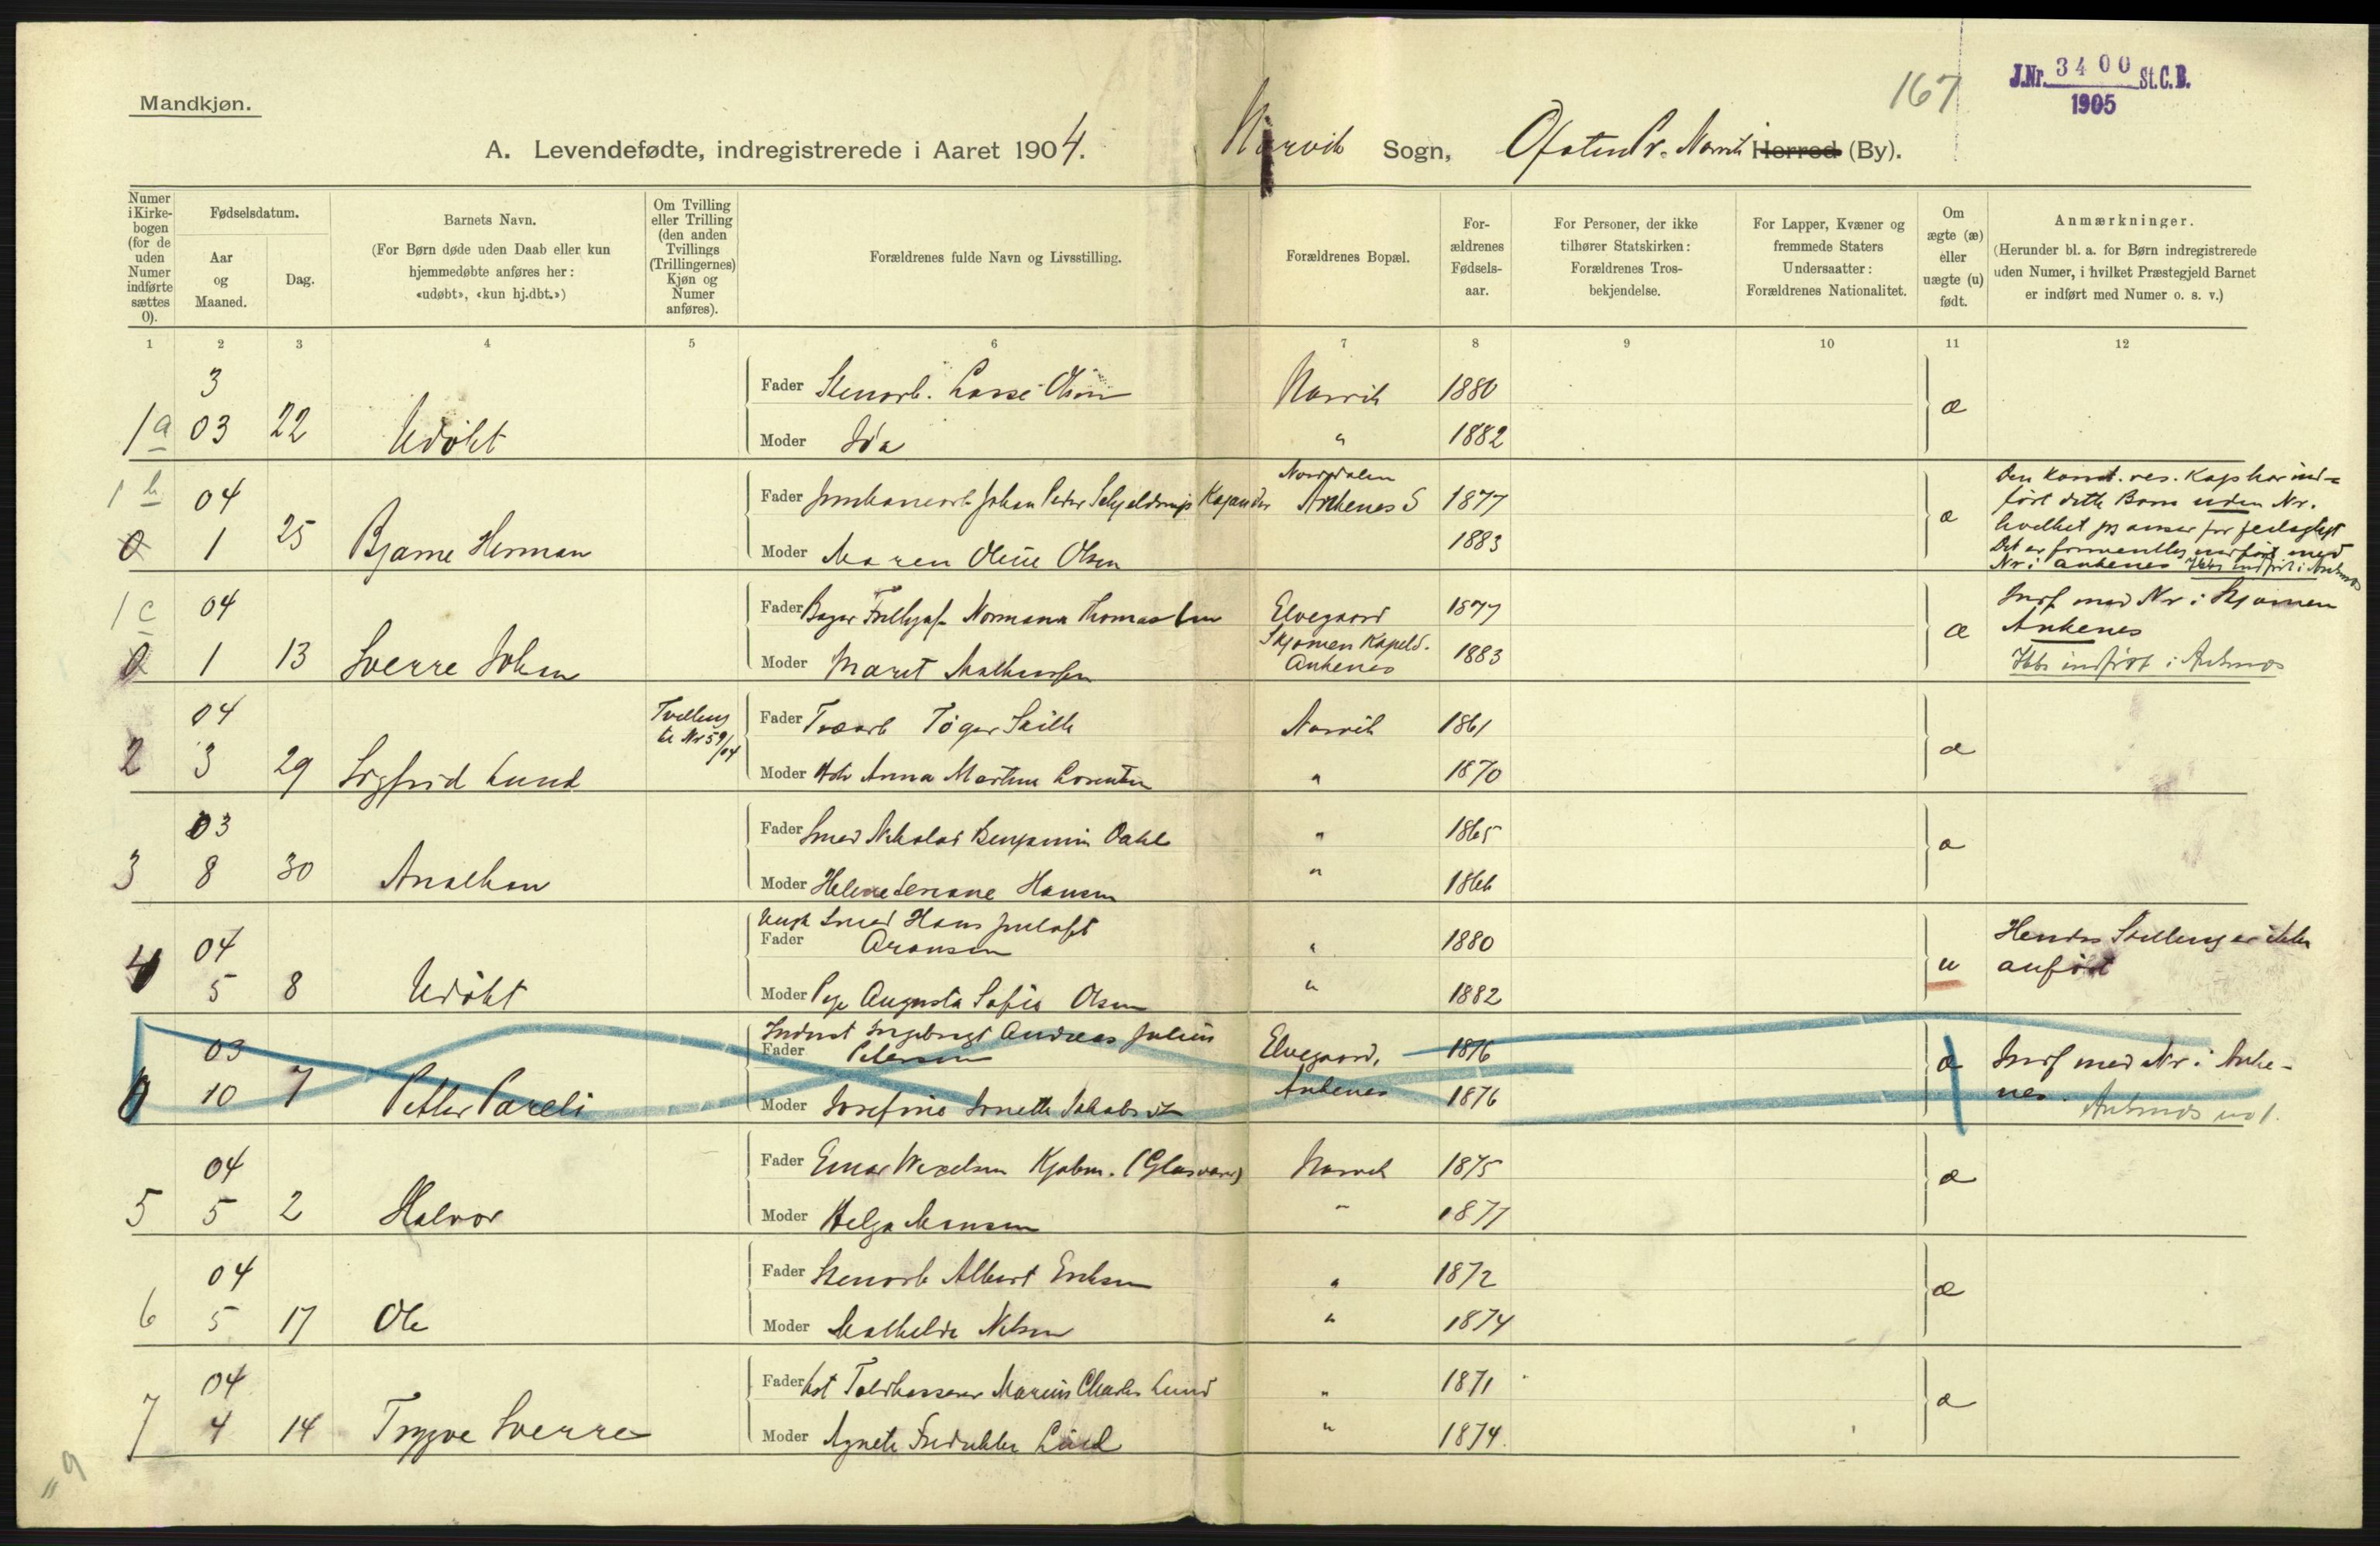 Mandkjøn.
167
J.Nr. 3400 St.C.B.
1905
A. Levendefødte, indregistrerede i Aaret 1904.
Narvik Sogn, Ofoten Pr. Narvik Herred (By).
Numer i Kirkebogen (for de uden Numer indførte sættes 0).
Fødselsdatum.
Aar og Maaned.
Dag.
Barnets Navn.
(For Børn døde uden Daab eller kun hjemmedøbte anføres her: «udøbt», «kun hj.dbt.»)
Om Tvilling eller Trilling (den anden Tvillings (Trillingernes) Kjøn og Numer anføres).
Forældrenes fulde Navn og Livsstilling.
Forældrenes Bopæl.
Forældrenes Fødselsaar.
For Personer, der ikke tilhører Statskirken: Forældrenes Trosbekjendelse.
For Lapper, Kvæner og fremmede Staters Undersaatter: Forældrenes Nationalitet.
Om ægte (æ) eller uægte (u) født.
Anmærkninger.
(Herunder bl. a. for Børn indregistrerede uden Numer, i hvilket Præstegjeld Barnet er indført med Numer o. s. v.)
1 2 3 4 5 6 7 8 9 10 11 12
3
1a 03 22 Udøbt
Fader Stenarb. Lasse Olsen Narvik 1880 æ
Moder Ida " 1882
1b 04
0 1 25 Bjarne Herman
Fader Johan Peter Schjelderup Norddalen Ankenes S 1877 æ
Moder Maren Oline Olsen 1883
Den konst. res. Kap har ind-
ført dette Barn uden Nr.
hvilket jeg anser for feilagtigt
Det er formentlig indført med
Nr i Ankenes Ikke indført i Ankenes
1c 04
0 1 13 Sverre Johan
Fader Normann Thomassen Elvegaard 1877 æ
Moder Marit Mathiassen Skjomen Kapeld. Ankenes 1883
Indf med Nr i Skjomen
Ankenes
Ikke indført i Ankenes
04
2 3 29 Sigfrid Lund
Tvilling
til Nr 59/04
Fader Narvik 1861 æ
Moder Anna Martine Lorentsen " 1870
03
3 8 30
Fader Smed Nikolai Benjamin Dahl " 1865 æ
Moder Helene Hansen " 1866
04
4 5 8 Udøbt
Ungk Smed Hans
Fader Aronsen " 1880 u
Moder Pige Augusta Sofie Olsen " 1882
Hendes Stilling er ikke
anført
03
0 10 7 Petter Pareli
Ingebrigt Andreas Julius
Fader Petersen Elvegaard, 1876 æ
Moder Josefine Ankenes 1876
Indf med Nr i Anke-
nes. Ankenes no 1.
04
5 5 2 Halvor
Fader Einar Wexelsen Kjøbm. (Glasvarer) Narvik 1875 æ
Moder Helga Hansen " 1877
04
6 5 17 Ole
Fader Stenarb Albert Eriksen " 1872 æ
Moder Mathilde Nilsen " 1874
04
7 4 14 Trygve Sverre
Fader Ast Toldkasserer Marius Charles Lund " 1871 æ
Moder Agnete Fredrikke Lund " 1874.
" 9